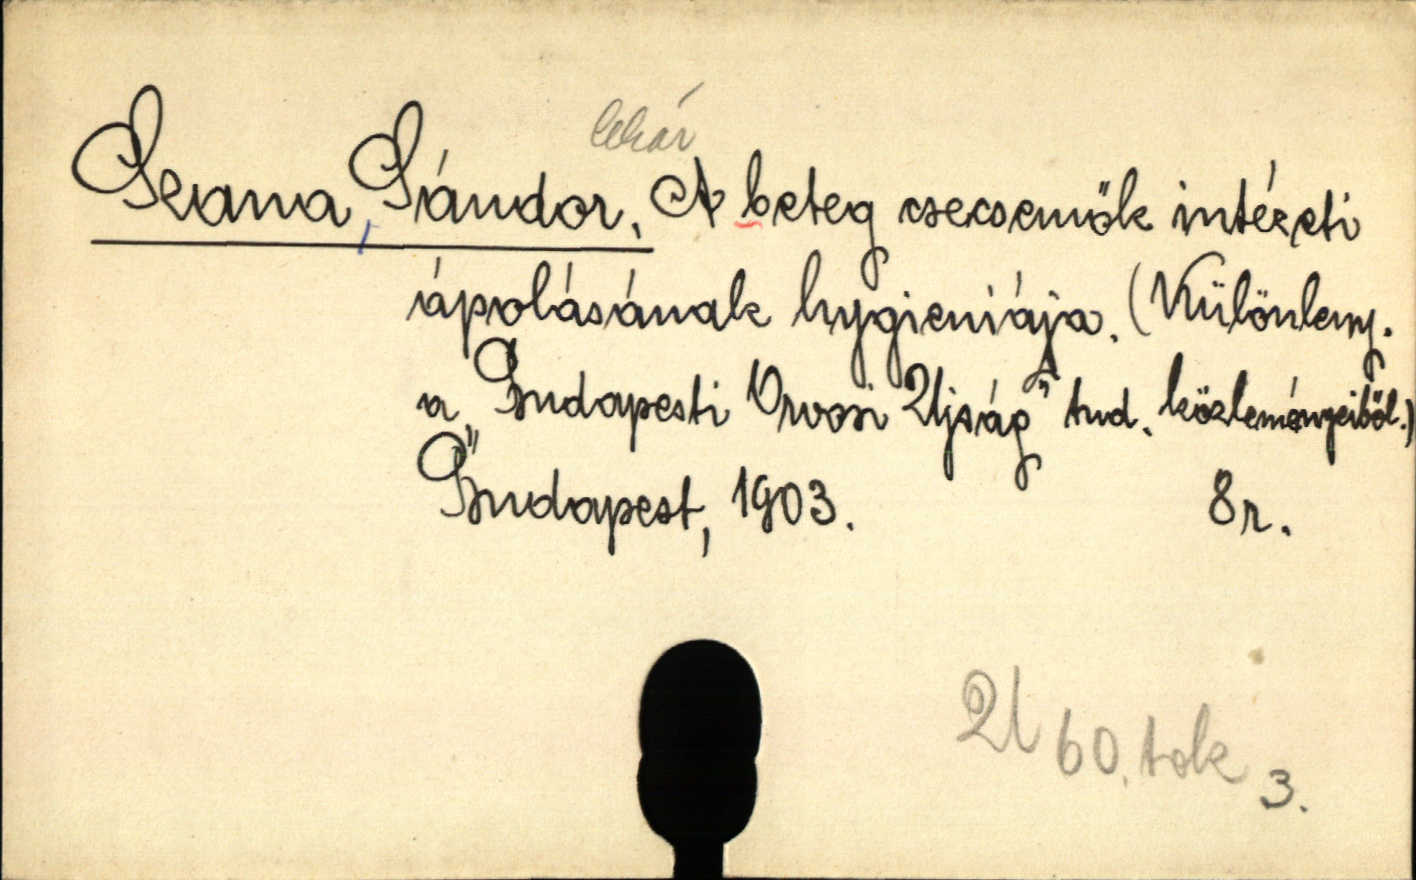 lehár
Szana, Sándor, A beteg csecsemők intézeti
ápolásának hygieniája. (Különleny.
a „Budapesti Orvosi Ujság" tud. közleményeiből.)
Budapest, 1903. 8r.
U 60. tok 3.